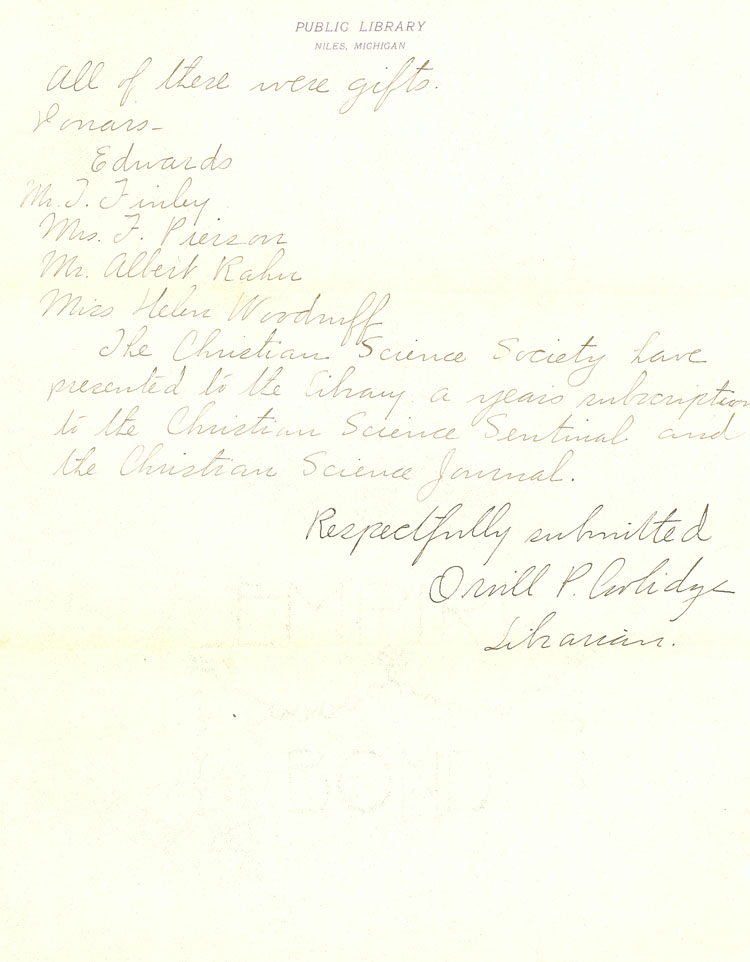 PUBLIC LIBRARY
NILES, MICHIGAN
All of these were gifts.
Donars-
Edwards
Mr. T. Finley
Mrs. F. Pierson
Mr. Albert Kahn
Miss Helen Woodruff
The Christian Science Society have
presented to the library a years subscription
to the Christian Science Sentinal and
the Christian Science Journal.
Respectfully submitted
Orvill P. Coolidge
Librarian.
BOND